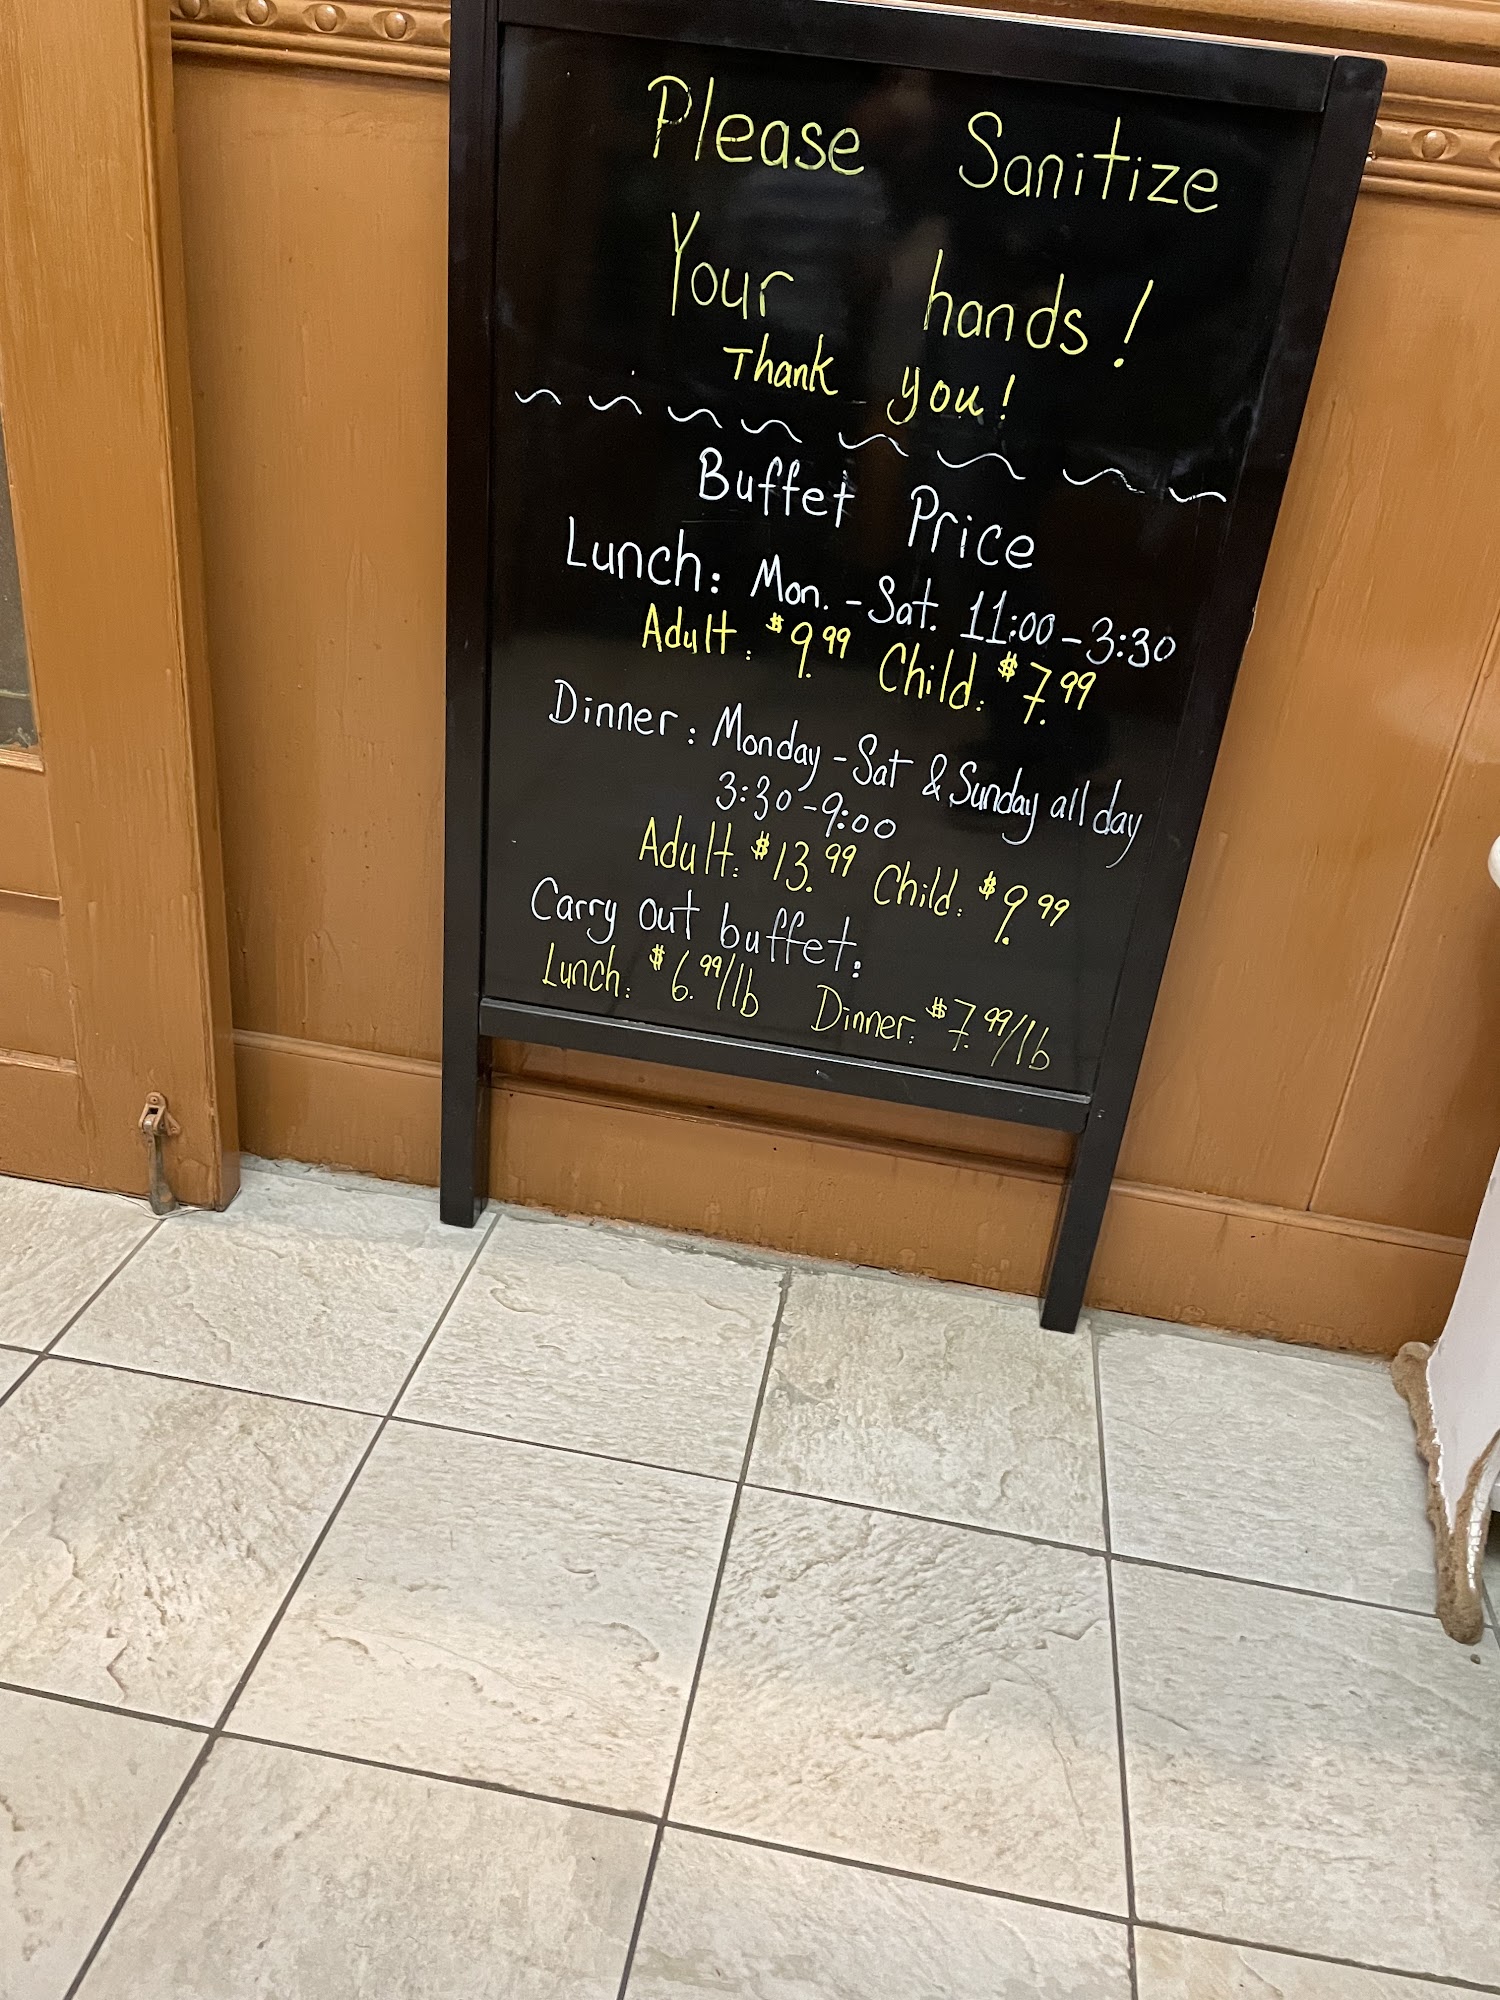 Please Sanitize
Your hands!
Thank you!
Buffet Price
Lunch: Mon. - Sat. 11:00 - 3:30
Adult: $9.99 Child: $7.99
Dinner: Monday - Sat & Sunday all day
3:30 - 9:00
Adult: $13.99 Child: $9.99
Carry out buffet:
Lunch: $6.99/lb Dinner: $7.99/lb